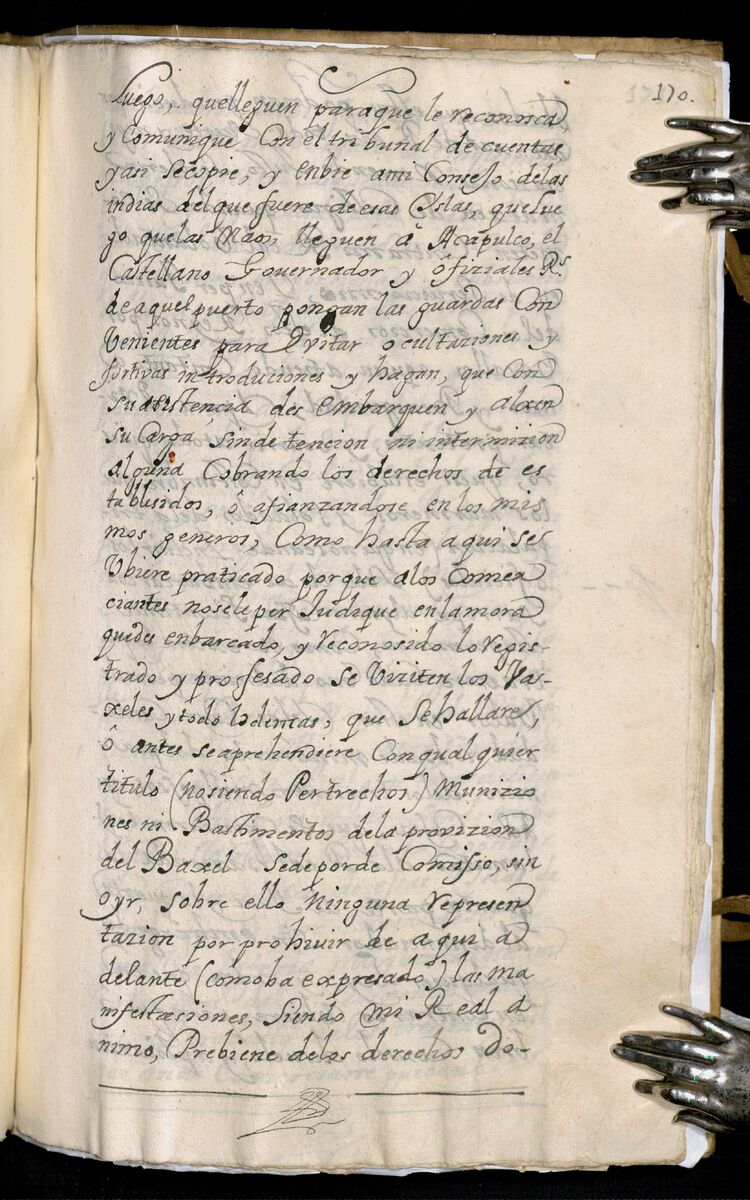 170.
Luego, quelleguen paraque le reconosca
y Comunique Con el tribunal de cuentas
yasi secopie, y enbie ami Consejo delas
indias del que fuere deesas Yslas, queLue
go quelas Naos, lleguen â Acapulco, el
Castellano Governador y ôfiziales Rs.
deaquel puerto pongan las guardas Con
Venientes para Evitar ocultaziones y
furtivas introduciones y hagan, que Con
su asistencia des embarquen y alxen
su Carga sinde tencion ni intermizion
alguna Cobrando los derechos de es
tablesidos, ô afianzandose en los mis
mos generos, Como hasta aqui se
Ubiere praticado porque alos Comer
ciantes noseleper Judique enlamora
quedes enbarcado, y reconosido lo regis-
trado y professado se Viziten los Va-
xeles ytodo lodemas, que Sehallare,
ô antes seaprehendiere Conqual quier
titulo (nosiendo Pertrechos) Munizio
nes ni Bastimentos dela provizion
del Baxel sedeporde Comisso, sin
oyr, sobre ello ninguna represen
tazion por prohivir de aqui a
delante (comoba expresado) las ma
nifestasiones, siendo mi Real a
nimo, Prebiene delos derechos do-